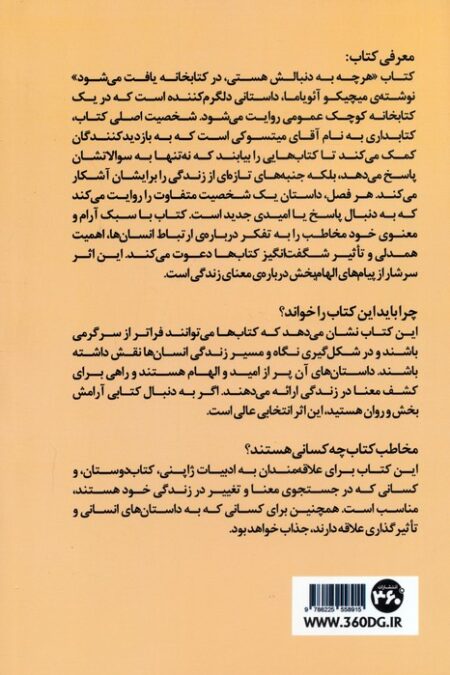 معرفی کتاب:
کتاب «هرچه به دنبالش هستی، در کتابخانه یافت می‌شود»
نوشته‌ی میچیکو آئویاما، داستانی دلگرم‌کننده است که در یک
کتابخانه کوچک عمومی روایت می‌شود. شخصیت اصلی کتاب،
کتابداری به نام آقای میتسوکی است که به بازدیدکنندگان
کمک می‌کند تا کتاب‌هایی را بیابند که نه‌تنها به سوالاتشان
پاسخ می‌دهد، بلکه جنبه‌های تازه‌ای از زندگی را برایشان آشکار
می‌کند. هر فصل، داستان یک شخصیت متفاوت را روایت می‌کند
که به دنبال پاسخ یا امیدی جدید است. کتاب با سبک آرام و
معنوی خود مخاطب را به تفکر درباره‌ی ارتباط انسان‌ها، اهمیت
همدلی و تأثیر شگفت‌انگیز کتاب‌ها دعوت می‌کند. این اثر
سرشار از پیام‌های الهام‌بخش درباره‌ی معنای زندگی است.
چرا باید این کتاب را خواند؟
این کتاب نشان می‌دهد که کتاب‌ها می‌توانند فراتر از سرگرمی
باشند و در شکل‌گیری نگاه و مسیر زندگی انسان‌ها نقش داشته
باشند. داستان‌های آن پر از امید و الهام هستند و راهی برای
کشف معنا در زندگی ارائه می‌دهند. اگر به دنبال کتابی آرامش
بخش و روان هستید، این اثر انتخابی عالی است.
مخاطب کتاب چه کسانی هستند؟
این کتاب برای علاقه‌مندان به ادبیات ژاپنی، کتاب‌دوستان، و
کسانی که در جستجوی معنا و تغییر در زندگی خود هستند،
مناسب است. همچنین برای کسانی که به داستان‌های انسانی و
تأثیرگذاری علاقه دارند، جذاب خواهد بود.
انتشارات
۳۶۰
9 786225 558915
WWW.360DG.IR